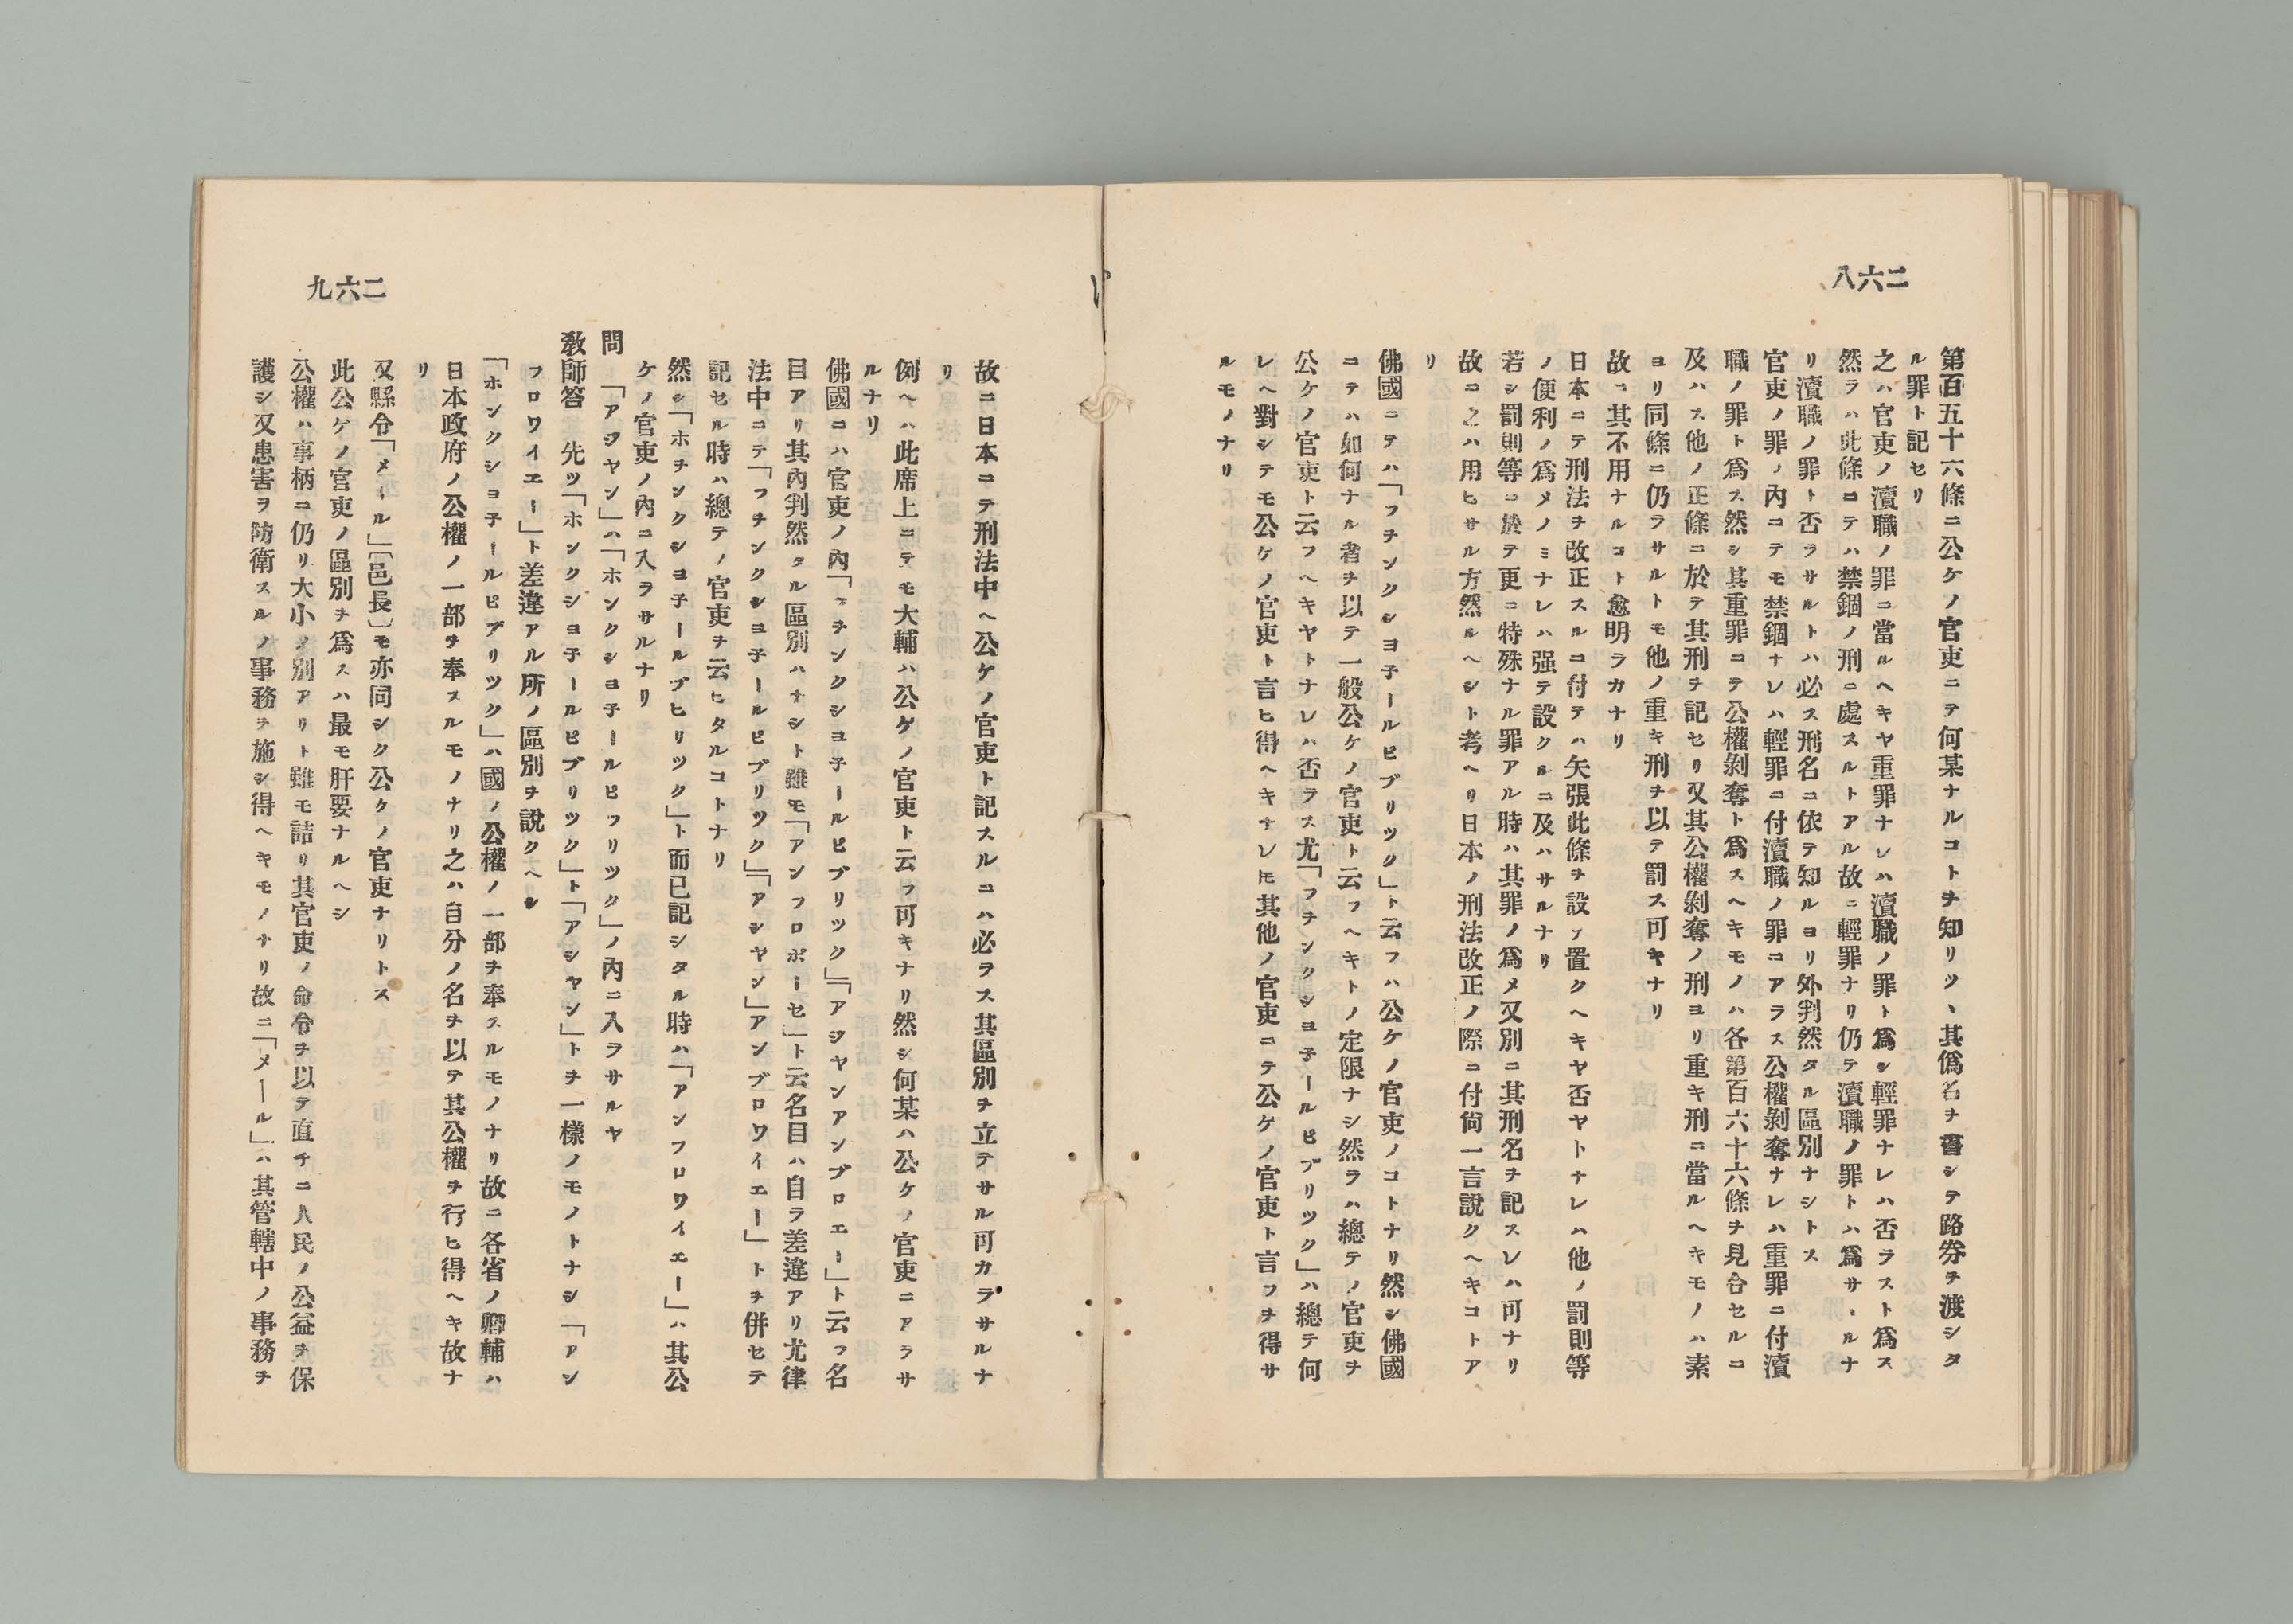 二六八
第百五十六條ニ公ケノ官吏ニテ何某ナルコトヲ知リツヽ其僞名ヲ書シテ路券ヲ渡シタ
ル罪ト記セリ
之ハ官吏ノ瀆職ノ罪ニ當ルヘキヤ重罪ナレハ瀆職ノ罪ト爲シ輕罪ナレハ否ラスト爲ス
然ラハ此條ニテハ禁錮ノ刑ニ處スルトアル故ニ輕罪ナリ仍テ瀆職ノ罪トハ爲サヽルナ
リ瀆職ノ罪ト否ラサルトハ必ス刑名ニ依テ知ルヨリ外判然タル區別ナシトス
官吏ノ罪ノ內ニテモ禁錮ナレハ輕罪ニ付瀆職ノ罪ニアラス公權剝奪ナレハ重罪ニ付瀆
職ノ罪ト爲ス然シ其重罪ニテ公權剝奪ト爲スヘキモノハ各第百六十六條ヲ見合セルニ
及ハス他ノ正條ニ於テ其刑ヲ記セリ又其公權剝奪ノ刑ヨリ重キ刑ニ當ルヘキモノハ素
ヨリ同條ニ仍ラサルトモ他ノ重キ刑ヲ以テ罰ス可キナリ
故ニ其不用ナルコト愈明ラカナリ
日本ニテ刑法ヲ改正スルニ付テハ矢張此條ヲ設ケ置クヘキヤ否ヤトナレハ他ノ罰則等
ノ便利ノ爲メノミナレハ强テ設クルニ及ハサルナリ
若シ罰則等ニ於テ更ニ特殊ナル罪アル時ハ其罪ノ爲メ又別ニ其刑名ヲ記スレハ可ナリ
故ニ之ハ用ヒサル方然ルヘシト考ヘリ日本ノ刑法改正ノ際ニ付尙一言說クヘキコトア
リ
佛國ニテハ「フヲンクシヨ子ールピブリツク」ト云フハ公ケノ官吏ノコトナリ然シ佛國
ニテハ如何ナル者ヲ以テ一般公ケノ官吏ト云フヘキトノ定限ナシ然ラハ總テノ官吏ヲ
公ケノ官吏ト云フヘキヤトナレハ否ラス尤「フヲンクシヨ子ールピブリツク」ハ總テ何
レヘ對シテモ公ケノ官吏ト言ヒ得ヘキナレトモ其他ノ官吏ニテ公ケノ官吏ト言フヲ得サ
ルモノナリ
二六九
故ニ日本ニテ刑法中ヘ公ケノ官吏ト記スルニハ必ラス其區別ヲ立テサル可カラサルナ
リ
例ヘハ此席上ニテモ大輔ハ公ケノ官吏ト云フ可キナリ然シ何某ハ公ケノ官吏ニアラサ
ルナリ
佛國ニハ官吏ノ內「フヲンクシヨ子ールピブリツク」「アシヤンアンブロエー」ト云フ名
目アリ其內判然タル區別ハナシト雖モ「アンフロポーセ」ト云名目ハ自ラ差違アリ尤律
法中ニテ「フヲンクシヨ子ールピブリツク」「アシヤン」アンブロワイエー」トヲ併セテ
記セル時ハ總テノ官吏ヲ云ヒタルコトナリ
然シ「ホヲンクシヨ子ールブヒリツク」ト而已記シタル時ハ「アンフロワイエー」ハ其公
ケノ官吏ノ內ニ入ラサルナリ
問　「アヲヤン」ハ「ホンクシヨ子ールピフリツク」ノ內ニ入ラサルヤ
敎師答　先ツ「ホンクシヨ子ールピブリツク」ト「アシヤン」トヲ一樣ノモノトナシ「アン
フロワイエー」ト差違アル所ノ區別ヲ說クヘシ
「ホンクシヨ子ールピブリツク」ハ國ノ公權ノ一部ヲ奉スルモノナリ故ニ各省ノ卿輔ハ
日本政府ノ公權ノ一部ヲ奉スルモノナリ之ハ自分ノ名ヲ以テ其公權ヲ行ヒ得ヘキ故ナ
リ
又縣令「メール」〔邑長〕モ亦同シク公クノ官吏ナリトス
此公ケノ官吏ノ區別ヲ爲スハ最モ肝要ナルヘシ
公權ハ事柄ニ仍リ大小ノ別アリト雖モ詰リ其官吏ノ命令ヲ以テ直チニ人民ノ公益ヲ保
護シ又患害ヲ防衛スルノ事務ヲ施シ得ヘキモノナリ故ニ「メール」ハ其管轄中ノ事務ヲ